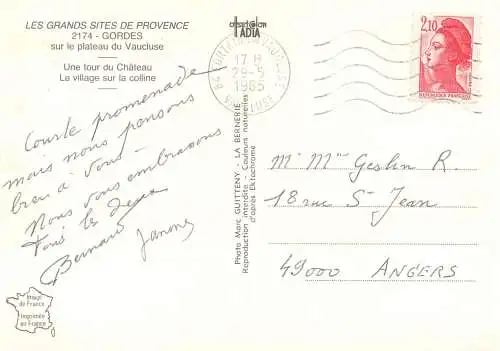 LES GRANDS SITES DE PROVENCE
2174 - GORDES
sur le plateau du Vaucluse
Une tour du Château
Le village sur la colline
Courte promenade
mais nous pensons
bien à vous -
Nous vous embrassons
Tous les deux
Bernard
ADIA
84
17 H
29-5
1985
VAUCLUSE
2,10
RÉPUBLIQUE FRANÇAISE
Photo Marc GUITTENY - LA BERNERIE
Reproduction interdite - Couleurs naturelles
d'après Ektachrome
Mr Mme Geslin R.
18 rue St Jean
49000 ANGERS
Image
de France
Imprimée
en France